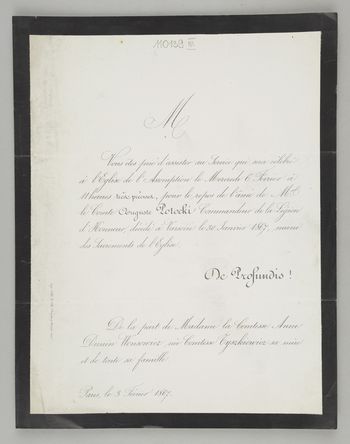 110139 III.
M
Vous êtes prié d'assister au Service qui sera célébré
à l'Eglise de l'Assomption le Mercredi 6 Février à
11 heures très précises, pour le repos de l'âme de Mr
le Comte Auguste Potocki Commandeur de la Légion
d'Honneur, décédé à Varsovie le 31 Janvier 1867, muni
des Sacrements de l'Eglise.
De Profundis !
De la part de Madame la Comtesse Anna
Dunin Wonsowicz née Comtesse Tyszkiewicz sa mère
et de toute sa famille.
Paris, le 3 Février 1867.